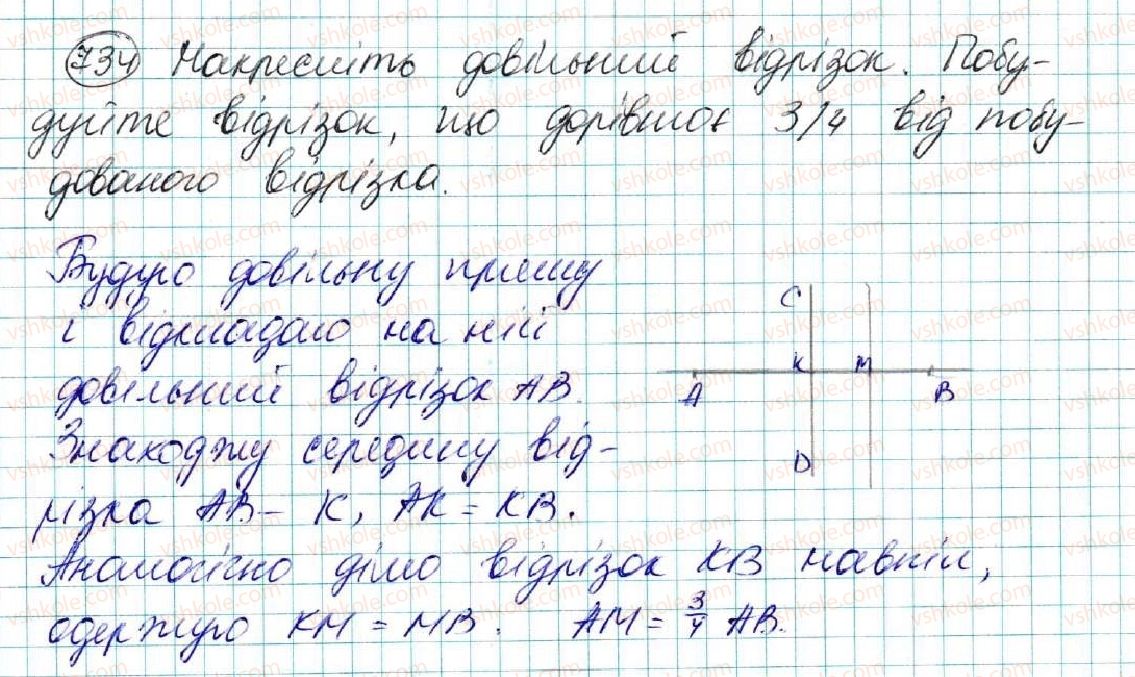 734 Накресліть довільний відрізок. Побу-
дуйте відрізок, що дорівнює 3/4 від побу-
дованого відрізка.
Будую довільну пряму
і відкладаю на ній
довільний відрізок AB.
Знаходжу середину від-
різка AB - K, AK = KB.
Аналогічно ділю відрізок KB навпіл,
одержую KM = MB. AM = 3/4 AB.
C
K M
A B
D
vshkole.com